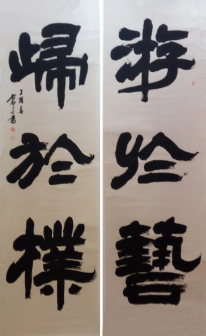 游於藝
歸於樸
丁酉年